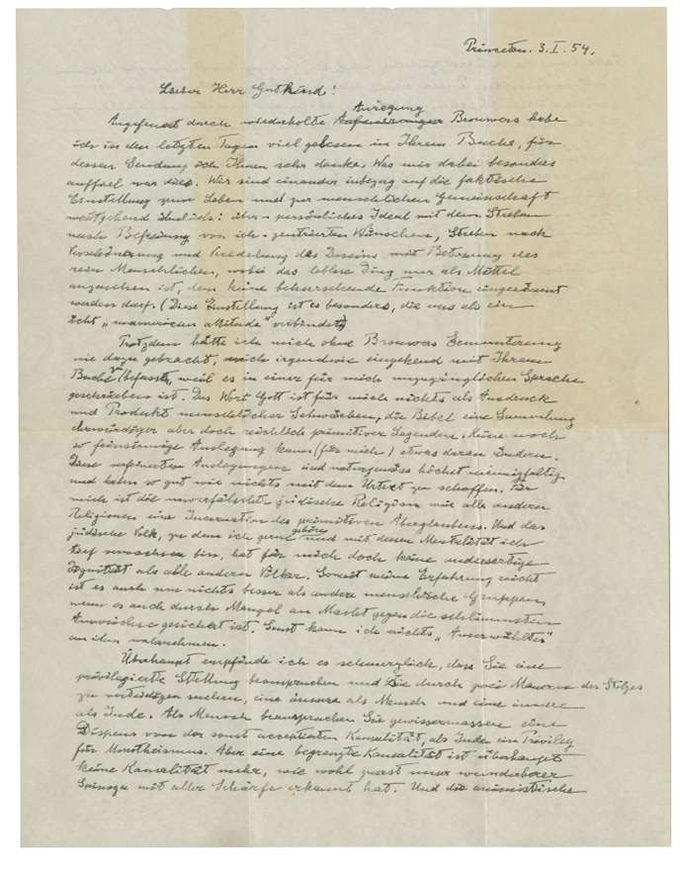 Princeton. 3. I. 54.
Lieber Herr Gutkind!
Anregung
Angefeuert durch wiederholte Brouwers habe
ich in den letzten Tagen viel gelesen in Ihrem Buche, für
dessen Sendung ich Ihnen sehr danke. Was mir dabei besonders
auffiel war dies. Wir sind einander inbezug auf die faktische
Einstellung zum Leben und zur menschlichen Gemeinschaft
weitgehend ähnlich: über-persönliches Ideal mit dem Streben
nach Befreiung von ich-zentrierten Wünschen, Streben nach
Verschönerung und Veredelung des Daseins mit Betonung des
rein Menschlichen, wobei das leblose Ding nur als Mittel
anzusehen ist, dem keine beherrschende Funktion eingeräumt
werden darf. (Diese Einstellung ist es besonders, die uns als ein
echt „unamerican attitude" verbindet)
Trotzdem hätte ich mich ohne Brouwers Ermunterung
nie dazu gebracht, mich irgendwie eingehend mit Ihrem
Buche zu befassen, weil es in einer für mich unzugänglichen Sprache
geschrieben ist. Das Wort Gott ist für mich nichts als Ausdruck
und Produkt menschlicher Schwächen, die Bibel eine Sammlung
ehrwürdiger aber doch reichlich primitiver Legenden. Keine noch
so feinsinnige Auslegung kann (für mich) etwas daran ändern.
Diese verfeinerten Auslegungen sind naturgemäss höchst mannigfaltig
und haben so gut wie nichts mit dem Urtext zu schaffen. Für
mich ist die unverfälschte jüdische Religion wie alle anderen
Religionen eine Incarnation des primitiven Aberglaubens. Und das
jüdische Volk, zu dem ich gerne gehöre und mit dessen Mentalität ich
tief verwachsen bin, hat für mich doch keine andersartige
Dignität als alle anderen Völker. Soweit meine Erfahrung reicht
ist es auch um nichts besser als andere menschliche Gruppen,
wenn es auch durch Mangel an Macht gegen die schlimmsten
Auswüchse gesichert ist. Sonst kann ich nichts „Auserwähltes"
an ihm wahrnehmen.
Überhaupt empfinde ich es schmerzlich, dass Sie eine
privilegierte Stellung beanspruchen und Sie durch zwei Mauern des Stolzes
zu verteidigen suchen, eine äussere als Mensch und eine innere
als Jude. Als Mensch beanspruchen Sie gewissermassen eine
Dispens von der sonst acceptierten Kausalität, als Jude ein Privileg
für Monotheismus. Aber eine begrenzte Kausalität ist überhaupt
keine Kausalität mehr, wie wohl zuerst unser wunderbarer
Spinoza mit aller Schärfe erkannt hat. Und die animistische